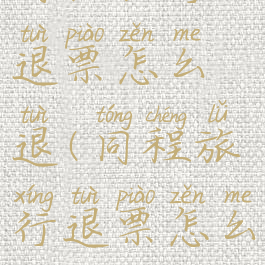 tuì piào zěn me
退票怎么
tuì tóng chéng lǚ
退(同程旅
xíng tuì piào zěn me
行退票怎么